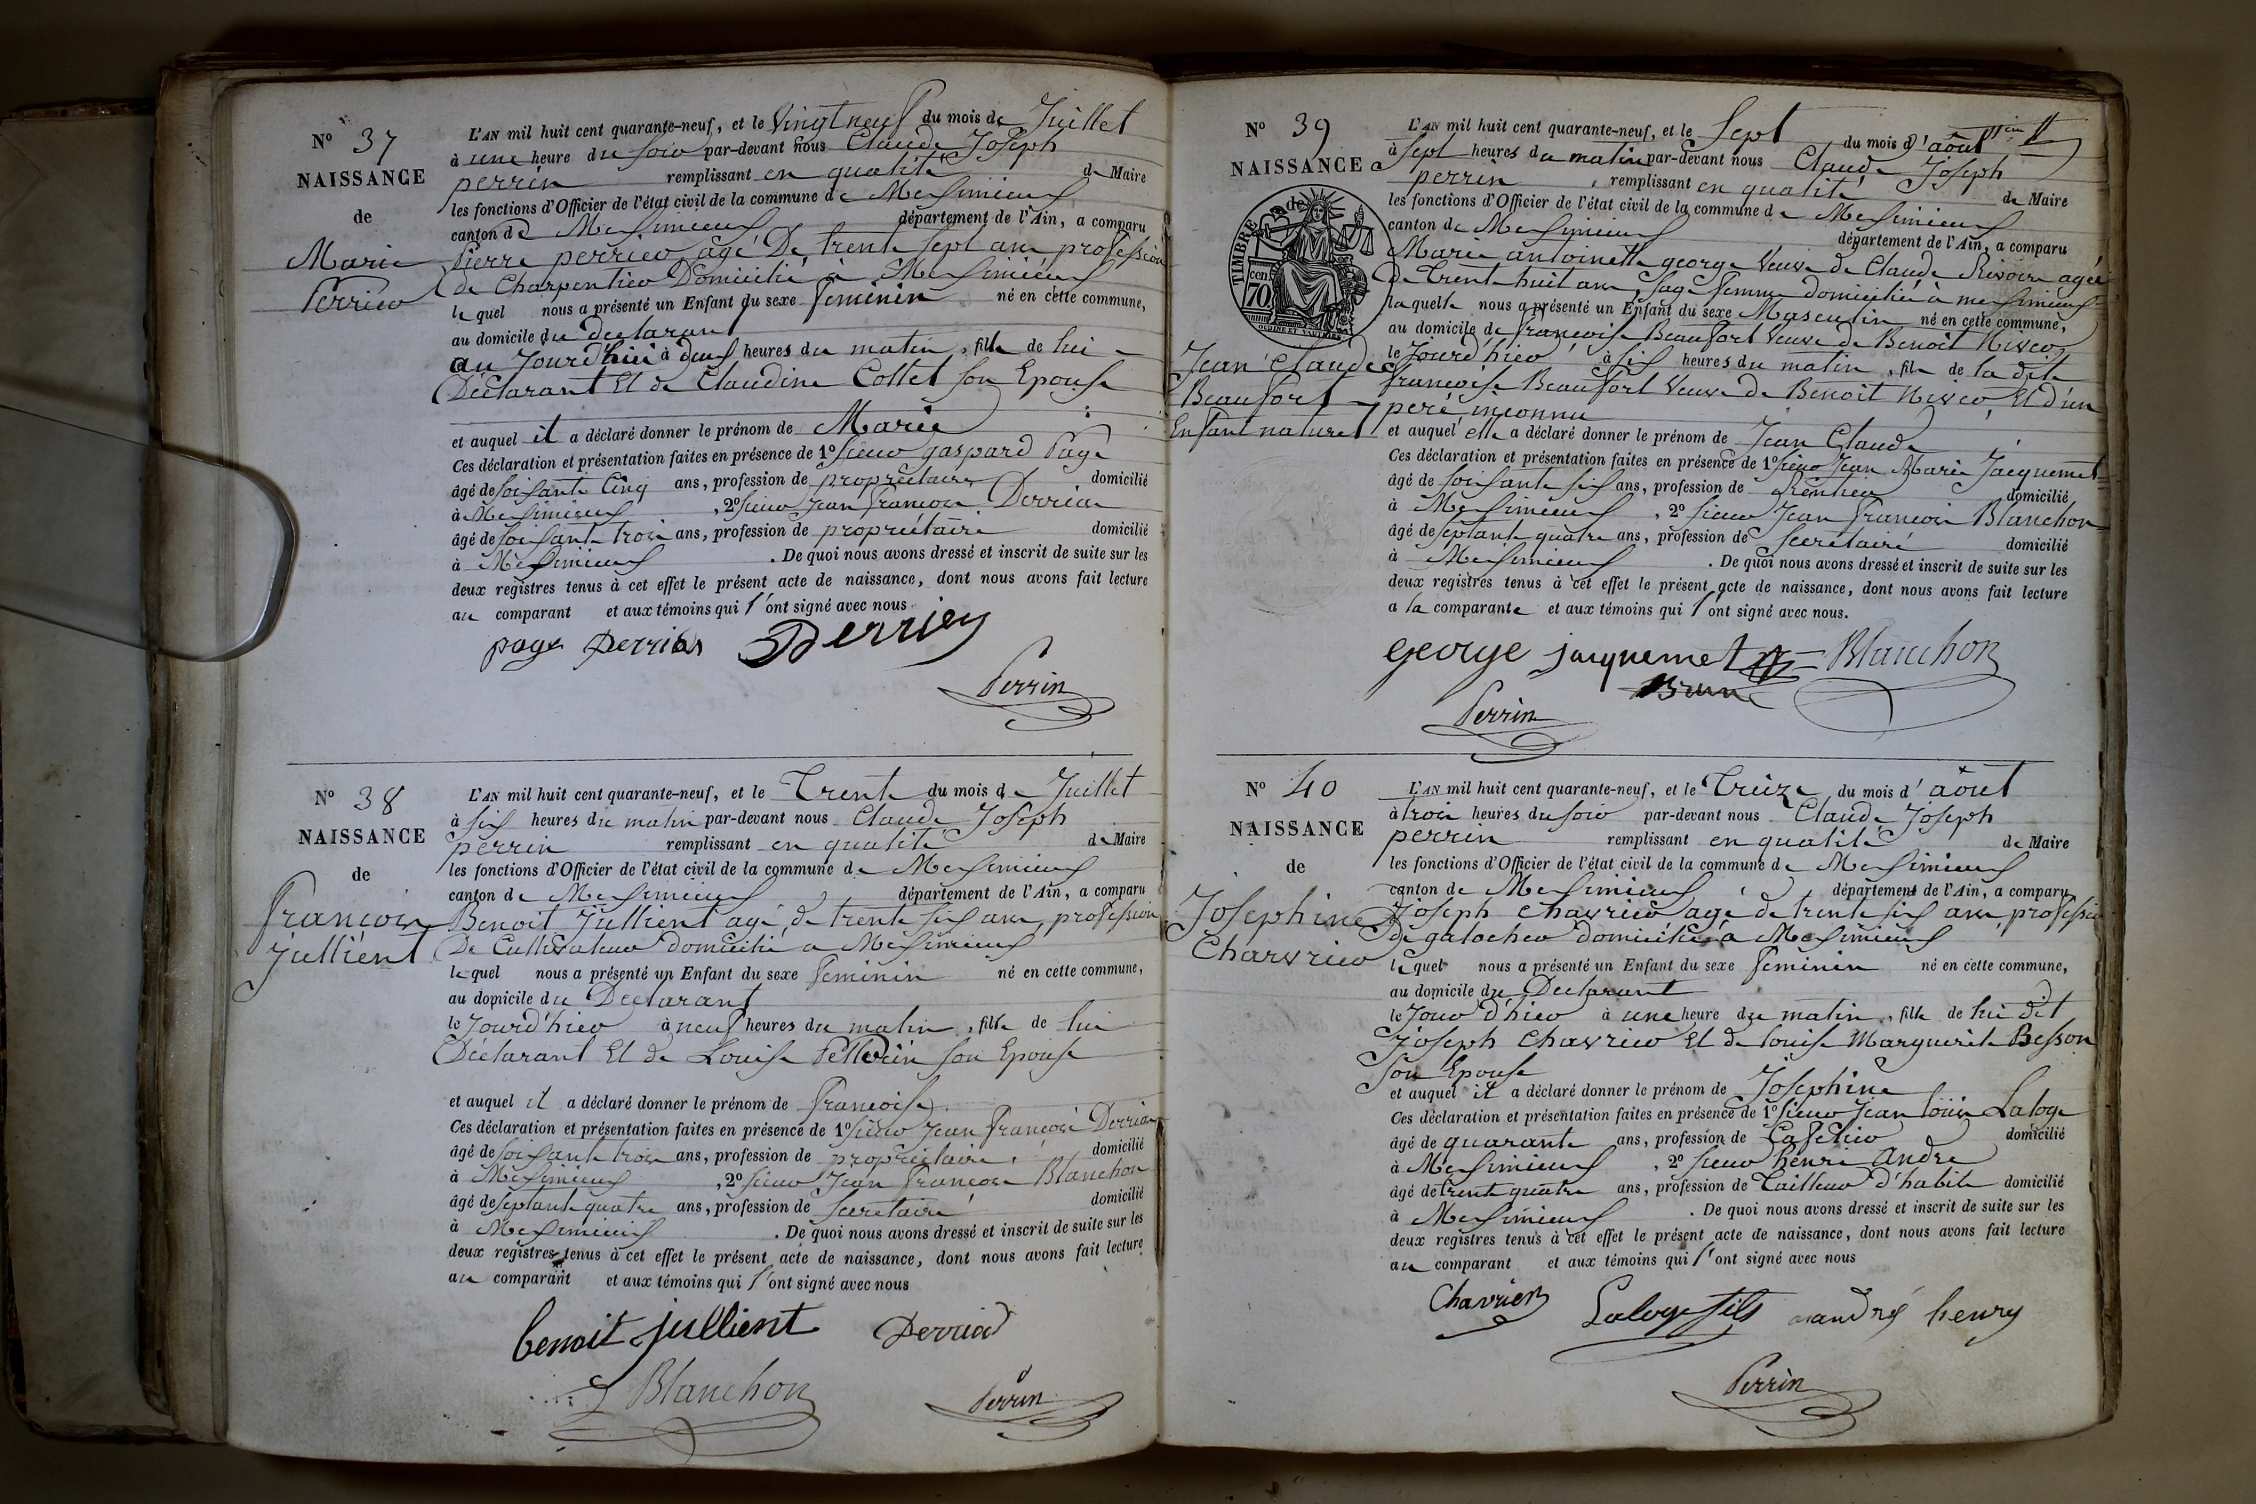 N° 37
NAISSANCE
de
Marie
Perrier
L'AN mil huit cent quarante-neuf, et le Vingt neuf du mois de Juillet
à une heure du soir par-devant nous Claude Joseph
perrin remplissant en qualité de Maire
les fonctions d'Officier de l'état civil de la commune de Meximieux
canton de Meximieux département de l'Ain, a comparu
Pierre perrier agé De trente sept ans profession
de Charpentier Domicilié à Meximieux
le quel nous a présenté un Enfant du sexe feminin né en cette commune,
au domicile du Declarant
au Jourd'hui à deux heures du matin, fille de lui
Déclarant Et de Claudine Collet son Epouse
et auquel il a déclaré donner le prénom de Marie
Ces déclaration et présentation faites en présence de 1° sieur gaspard Page
âgé de soixante Cinq ans, profession de propriétaire domicilié
à Meximieux, 2° sieur Jean françois Derriaz
âgé de soixante trois ans, profession de propriétaire domicilié
à Meximieux. De quoi nous avons dressé et inscrit de suite sur les
deux registres tenus à cet effet le présent acte de naissance, dont nous avons fait lecture
au comparant et aux témoins qui l'ont signé avec nous
page Perrier
Perrin
N° 38
NAISSANCE
de
françoise
Jullient
L'AN mil huit cent quarante-neuf, et le Trente du mois de Juillet
à six heures du matin par-devant nous Claude Joseph
perrin remplissant en qualité de Maire
les fonctions d'Officier de l'état civil de la commune de Meximieux
canton de Meximieux département de l'Ain, a comparu
Benoit Jullient agé de trente six ans profession
De Cultivateur domicilié a Meximieux
le quel nous a présenté un Enfant du sexe feminin né en cette commune,
au domicile du Déclarant
le Jourd'hier à neuf heures du matin, fille de lui
Déclarant Et de Louise Pellerin son Epouse
et auquel il a déclaré donner le prénom de françoise
Ces déclaration et présentation faites en présence de 1° sieur Jean françois Derriaz
âgé de soixante trois ans, profession de propriétaire domicilié
à Meximieux, 2° sieur Jean françois Blanchon
âgé de septante quatre ans, profession de secretaire domicilié
à Meximieux. De quoi nous avons dressé et inscrit de suite sur les
deux registres tenus à cet effet le présent acte de naissance, dont nous avons fait lecture
au comparant et aux témoins qui l'ont signé avec nous
benoit jullient Derriaz
Blanchon Perrin
N° 39
NAISSANCE
TIMBRE de
cen 70
Jean Claude
Beaufort
Enfant naturel
L'AN mil huit cent quarante-neuf, et le Sept du mois d'août
à sept heures du matin par-devant nous Claude Joseph
perrin, remplissant en qualité de Maire
les fonctions d'Officier de l'état civil de la commune de Meximieux
canton de Meximieux département de l'Ain, a comparu
Marie antoinette george Veuve de Claude Rivoire agée
De Trente huit ans, sage femme domiciliée à meximieux
laquelle nous a présenté un Enfant du sexe Masculin né en cette commune,
au domicile de françoise Beaufort Veuve de Benoit
le Jourd'hier à six heures du matin, fils de la dite
françoise Beaufort Veuve de Benoit Et d'un
pere inconnu
et auquel elle a déclaré donner le prénom de Jean Claude
Ces déclaration et présentation faites en présence de 1° sieur Jean Marie Jacquemet
âgé de soixante six ans, profession de Rentier domicilié
à Meximieux, 2° sieur Jean françois Blanchon
âgé de septante quatre ans, profession de secretaire domicilié
à Meximieux. De quoi nous avons dressé et inscrit de suite sur les
deux registres tenus à cet effet le présent acte de naissance, dont nous avons fait lecture
a la comparante et aux témoins qui l'ont signé avec nous.
george jacquemet Blanchon
Perrin
N° 40
NAISSANCE
de
Josephine
Charvrier
L'AN mil huit cent quarante-neuf, et le Treize du mois d'août
à trois heures du soir par-devant nous Claude Joseph
perrin remplissant en qualité de Maire
les fonctions d'Officier de l'état civil de la commune de Meximieux
canton de Meximieux département de l'Ain, a comparu
Joseph Chavrier agé de trente six ans profession
de galocher domicilié à Meximieux
le quel nous a présenté un Enfant du sexe feminin né en cette commune,
au domicile du Declarant
le Jour d'hier à une heure du matin, fille de lui dit
Joseph Chavrier Et de louise Marguerite Besson
Son Epouse
et auquel il a déclaré donner le prénom de Josephine
Ces déclaration et présentation faites en présence de 1° sieur Jean louis Laloge
âgé de quarante ans, profession de Cafetier domicilié
à Meximieux, 2° sieur henri andré
âgé de trente quatre ans, profession de Tailleur d'habits domicilié
à Meximieux. De quoi nous avons dressé et inscrit de suite sur les
deux registres tenus à cet effet le présent acte de naissance, dont nous avons fait lecture
au comparant et aux témoins qui l'ont signé avec nous
Chavrier Laloge fils andré henry
Perrin